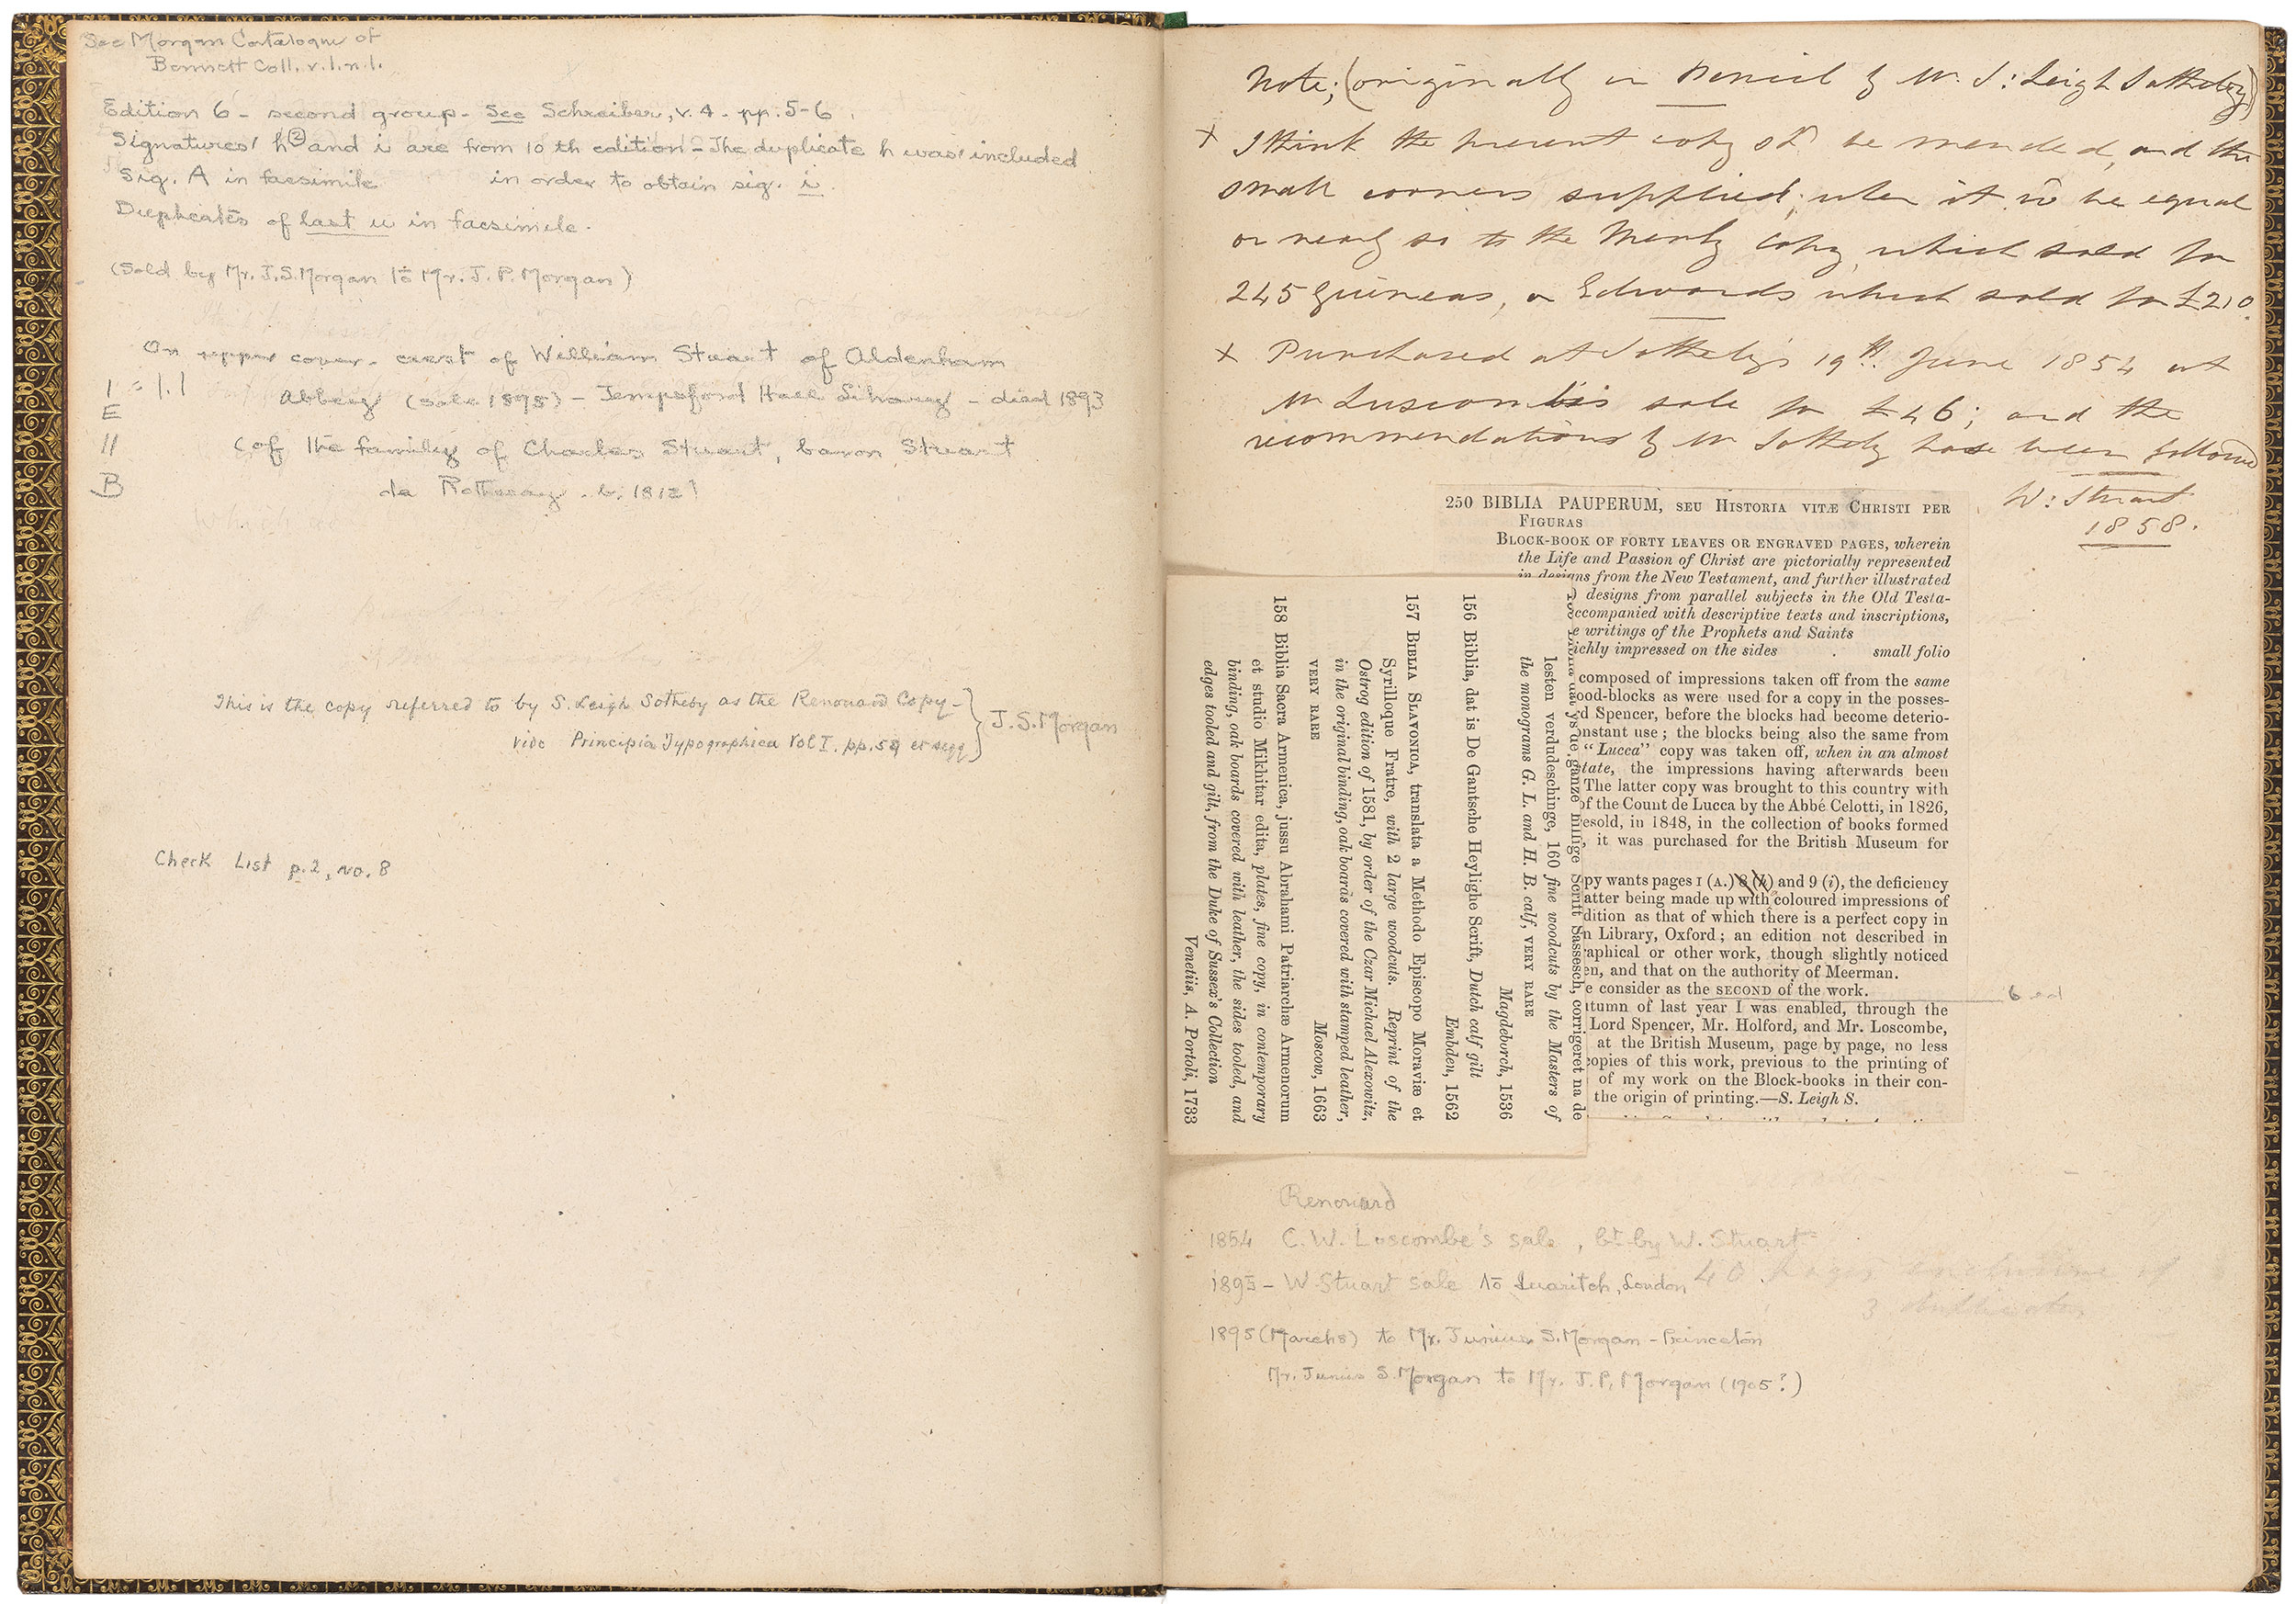 See Morgan Catalogue of
Bennett Coll. v.1.n.1.
Edition 6 - second group - See Schreiber, v. 4. pp. 5-6
Signatures h② and i are from 10 th edition - The duplicate h was included
Sig. A in facsimile in order to obtain sig. i.
Duplicates of last u in facsimile.
(Sold by Mr. J.S. Morgan to Mr. J. P. Morgan)
On upper cover - crest of William Stuart of Aldenham
Abbey (sale 1895) - Tempsford Hall Library - died 1893
(of the family of Charles Stuart, baron Stuart
de Rothesay
I
E
II
B
This is the copy referred to by S. Leigh Sotheby as the Renouard Copy -
vide Principia Typographica Vol I. pp. 59 et seqq } J. S. Morgan
Check List p.2, no. 8
Note; (originally in Pencil by Mr. S: Leigh Sotheby)
x I think the present copy shd be mended, and the
small corners supplied; when it wd be equal
or nearly so to the Merly Copy, which sold for
245 Guineas, or Edwards which sold for £210.
x Purchased at Sotheby's 19th. June 1854 at
Mr Luscombe's sale for £46; and the
recommendations by Mr Sotheby have been followed
W: Stuart
1858.
250 BIBLIA PAUPERUM, SEU HISTORIA VITÆ CHRISTI PER
FIGURAS
BLOCK-BOOK OF FORTY LEAVES OR ENGRAVED PAGES, wherein
the Life and Passion of Christ are pictorially represented
in designs from the New Testament, and further illustrated
designs from parallel subjects in the Old Testa-
ccompanied with descriptive texts and inscriptions,
e writings of the Prophets and Saints
ichly impressed on the sides . small folio
composed of impressions taken off from the same
ood-blocks as were used for a copy in the posses-
d Spencer, before the blocks had become deterio-
onstant use; the blocks being also the same from
"Lucca" copy was taken off, when in an almost
tate, the impressions having afterwards been
The latter copy was brought to this country with
of the Count de Lucca by the Abbé Celotti, in 1826,
esold, in 1848, in the collection of books formed
, it was purchased for the British Museum for
py wants pages 1 (A.) 8 (h) and 9 (i), the deficiency
atter being made up with coloured impressions of
dition as that of which there is a perfect copy in
n Library, Oxford; an edition not described in
raphical or other work, though slightly noticed
en, and that on the authority of Meerman.
e consider as the SECOND of the work. 6 ed
utumn of last year I was enabled, through the
Lord Spencer, Mr. Holford, and Mr. Loscombe,
at the British Museum, page by page, no less
copies of this work, previous to the printing of
of my work on the Block-books in their con-
the origin of printing.—S. Leigh S.
ys de ganze hillige Scrift Sassesch, corrigeret na de
lesten verdudeschinge, 160 fine woodcuts by the Masters of
the monograms G. L. and H. B. calf, VERY RARE
Magdeborch, 1536
156 Biblia, dat is De Gantsche Heylighe Scrift, Dutch calf gilt
Embden, 1562
157 BIBLIA SLAVONICA, translata a Methodo Episcopo Moraviæ et
Syrilloque Fratre, with 2 large woodcuts. Reprint of the
Ostrog edition of 1581, by order of the Czar Michael Alexowitz,
in the original binding, oak boards covered with stamped leather,
VERY RARE Moscow, 1663
158 Biblia Sacra Armenica, jussu Abrahami Patriarchæ Armenorum
et studio Mikhitar edita, plates, fine copy, in contemporary
binding, oak boards covered with leather, the sides tooled, and
edges tooled and gilt, from the Duke of Sussex's Collection
Venetiis, A. Portoli, 1733
Renouard
1854 C. W. Loscombe's sale, bt. by W. Stuart
1895 - W. Stuart sale to Quaritch, London
40 pages exclusive of
3 duplicates
1895 (March 8) to Mr. Junius S. Morgan - Princeton
Mr. Junius S. Morgan to Mr. J. P. Morgan (1905?)